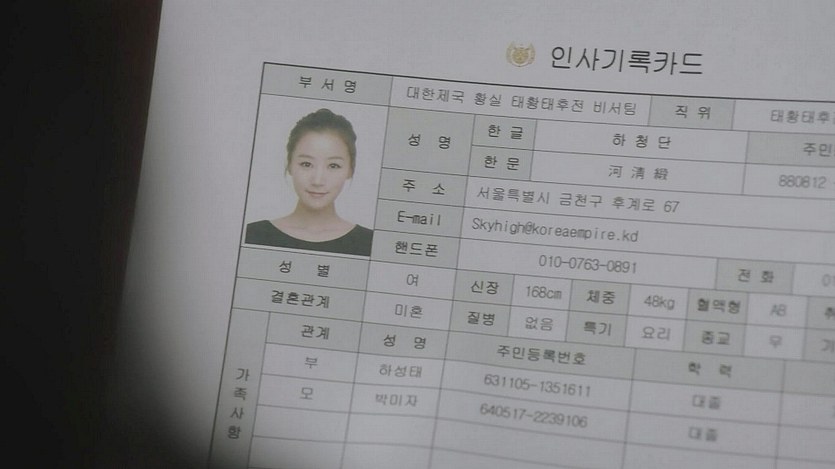 인사기록카드
부 서 명 대한제국 황실 태황태후전 비서팀 직 위
성 명 한 글 하 청 단
한 문 河 清 緞
880812
주 소 서울특별시 금천구 후계로 67
E-mail Skyhigh@koreaempire.kd
핸드폰 010-0763-0891 전 화
성 별 여 신장 168cm 체중 48kg 혈액형 AB
결혼관계 미혼 질병 없음 특기 요리 종교 무
가족사항 관계 성 명 주민등록번호 학 력
부 하성태 631105-1351611 대졸
모 박미자 640517-2239106 대졸